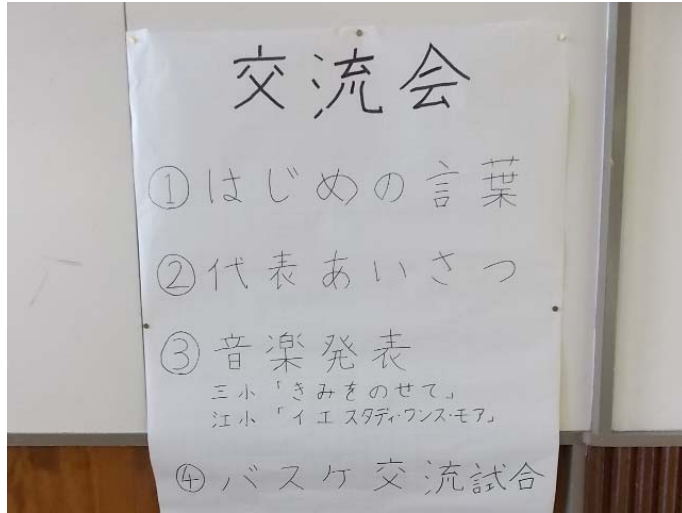 交流会
①はじめの言葉
②代表あいさつ
③音楽発表
三小「きみをのせて」
江小「イエスタディ・ワンス・モア」
④バスケ交流試合